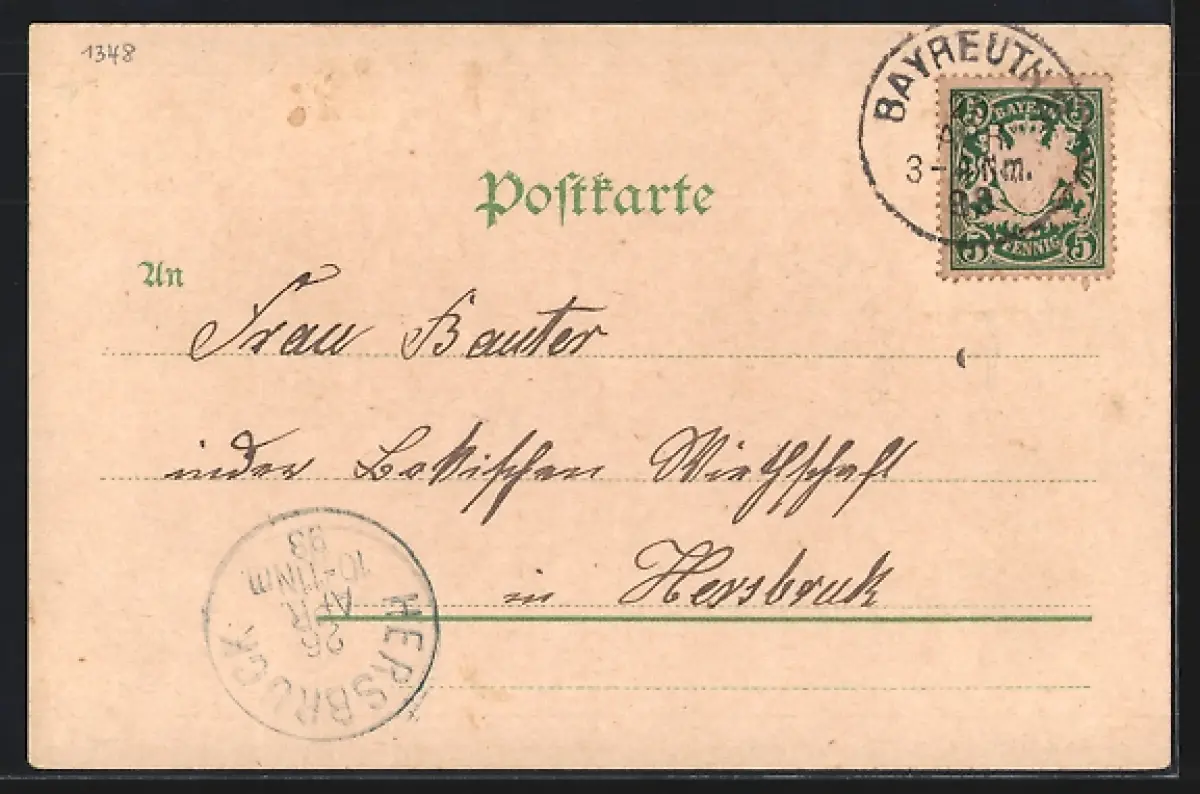 1348
BAYREUTH
3-4 Nm.
5 BAYERN 5
5 PFENNIG 5
Postkarte
An
Frau Bauter
in der Wirthschaft
in Hersbruk
HERSBRUCK
26
APR
10-11 Nm
93